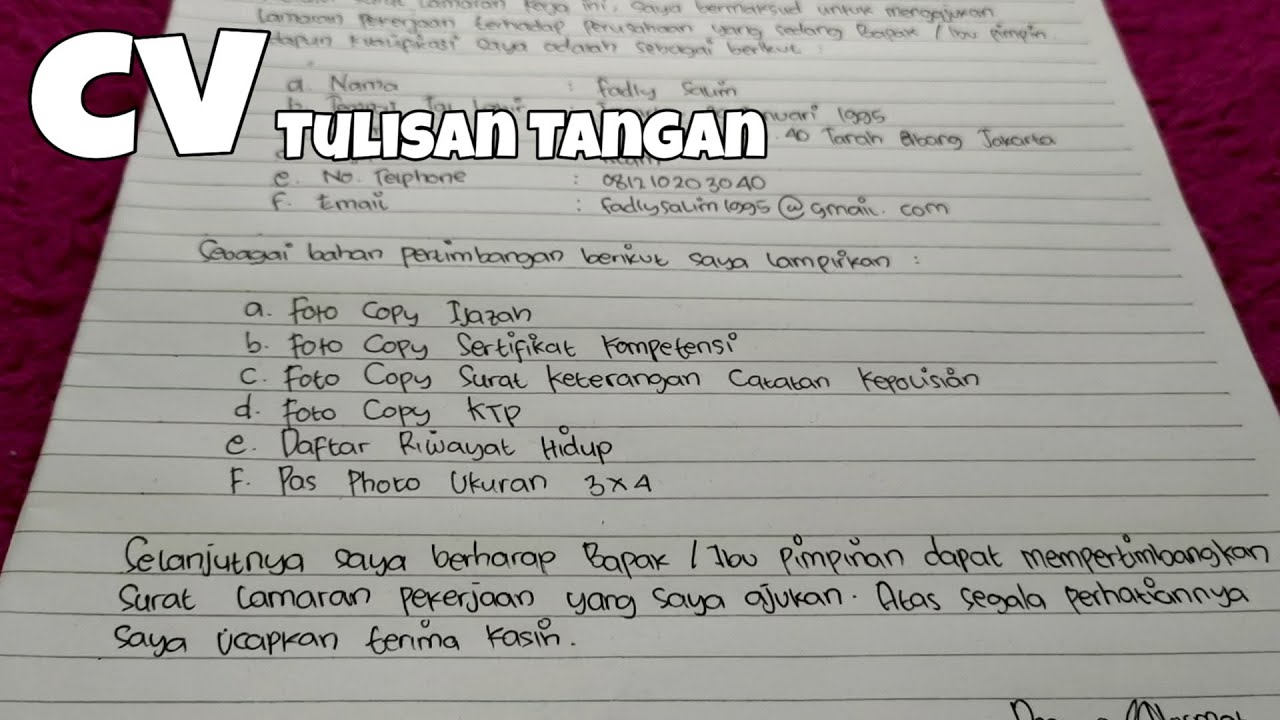 CV TULISAN TANGAN
lamaran kerja ini, saya bermaksud untuk mengajukan
lamaran pekerjaan terhadap perusahaan yang sedang Bapak / Ibu pimpin.
kualifikasi saya adalah sebagai berikut :
a. Nama : Fadly Salim
b. Tempat Tgl Lahir : 1995
40 Tanah Abang Jakarta
e. No. Telphone : 081210203040
f. Email : fadlysalim1995@gmail.com
Sebagai bahan pertimbangan berikut saya lampirkan :
a. Foto Copy Ijazah
b. Foto Copy Sertifikat Kompetensi
c. Foto Copy Surat Keterangan Catatan Kepolisian
d. Foto Copy KTP
e. Daftar Riwayat Hidup
F. Pas Photo Ukuran 3x4
Selanjutnya saya berharap Bapak / Ibu pimpinan dapat mempertimbangkan
surat lamaran pekerjaan yang saya ajukan. Atas segala perhatiannya
saya ucapkan terima kasih.